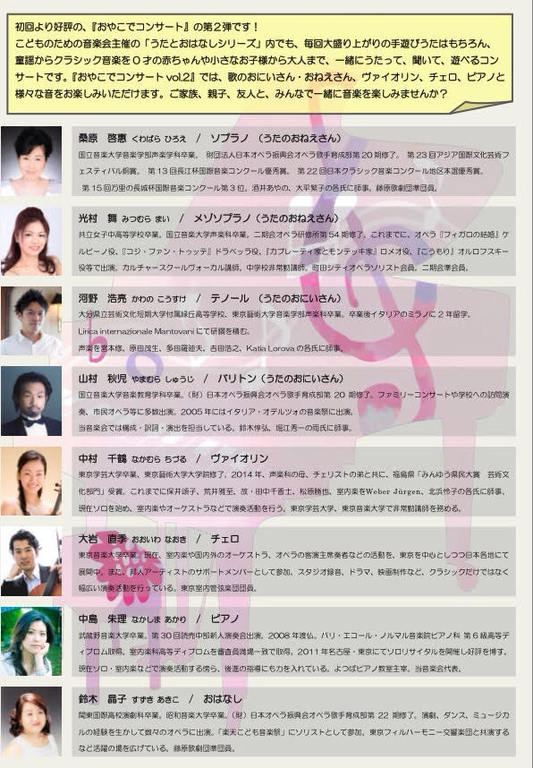 初回より好評の、『おやこでコンサート』の第２弾です！
こどものための音楽会主催の「うたとおはなしシリーズ」内でも、毎回大盛り上がりの手遊びうたはもちろん、
童謡からクラシック音楽を０才の赤ちゃんや小さなお子様から大人まで、一緒にうたって、聞いて、遊べるコン
サートです。『おやこでコンサート vol.2』では、歌のおにいさん・おねえさん、ヴァイオリン、チェロ、ピアノと
様々な音をお楽しみいただけます。ご家族、親子、友人と、みんなで一緒に音楽を楽しみませんか？
桑原 啓惠 くわばら ひろえ / ソプラノ （うたのおねえさん）
国立音楽大学音楽学部声楽学科卒業。 財団法人日本オペラ振興会オペラ歌手育成部第20期修了。 第23回アジア国際文化芸術フ
ェスティバル銅賞。 第13回長江杯国際音楽コンクール優秀賞。 第22回日本クラシック音楽コンクール地区本選優秀賞。
第15回万里の長城杯国際音楽コンクール第3位。酒井あやの、大平繁子の各氏に師事。藤原歌劇団準団員。
光村 舞 みつむら まい / メゾソプラノ（うたのおねえさん）
共立女子中高等学校卒業。国立音楽大学声楽科卒業。二期会オペラ研修所第54期修了。これまでに、オペラ『フィガロの結婚』ケ
ルビーノ役、『コジ・ファン・トゥッテ』ドラベッラ役、『カプレーティ家とモンテッキ家』ロメオ役、『こうもり』オルロフスキー
役等で出演。カルチャースクールヴォーカル講師。中学校非常勤講師。町田シティオペラソリスト会員。二期会準会員。
河野 浩亮 かわの こうすけ / テノール （うたのおにいさん）
大分県立芸術文化短期大学付属緑丘高等学校、東京藝術大学音楽学部声楽科卒業。卒業後イタリアのミラノに2年留学。
Lirica internazionale Mantovani にて研鑽を積む。
声楽を宮本修、原田茂生、多田羅迪夫、吉田浩之、Katia Lorova の各氏に師事。
山村 秋児 やまむら しゅうじ / バリトン（うたのおにいさん）
国立音楽大学音楽教育学科卒業。（財）日本オペラ振興会オペラ歌手育成部第20期修了。ファミリーコンサートや学校への訪問演
奏、市民オペラ等に多数出演。2005年にはイタリア・オデルツォの音楽祭に出演。
当音楽会では構成・訳詞・演出を担当している。鈴木惇弘、堀江秀一の両氏に師事。
中村 千鶴 なかむら ちづる / ヴァイオリン
東京学芸大学卒業、東京藝術大学大学院修了。2014年、声楽科の母、チェリストの弟と共に、福島県「みんゆう県民大賞 芸術文
化部門」受賞。これまでに保井頌子、荒井雅至、故・田中千香士、松原勝也、室内楽をWeber Jürgen、北浜怜子の各氏に師事。
現在ソロを始め、室内楽やオーケストラなどで演奏活動を行う。東京学芸大学、東京音楽大学で非常勤講師を務める。
大岩 直季 おおいわ なおき / チェロ
東京音楽大学卒業。現在、室内楽や国内外のオーケストラ、オペラの客演主席奏者などの活動を、東京を中心としつつ日本各地にて
展開中。また、邦人アーティストのサポートメンバーとして参加、スタジオ録音、ドラマ、映画制作など、クラシックだけではなく
幅広い演奏活動を行っている。東京室内管弦楽団団員。
中島 朱理 なかしま あかり / ピアノ
武蔵野音楽大学卒業。第30回読売中部新人演奏会出演。2008年渡仏。パリ・エコール・ノルマル音楽院ピアノ科 第6級高等デ
ィプロム取得。室内楽科高等ディプロムを審査員満場一致で取得。2011年名古屋・東京にてソロリサイタルを開催し好評を博す。
現在ソロ・室内楽などで演奏活動する傍ら、後進の指導にも力を入れている。よつばピアノ教室主宰。当音楽会代表。
鈴木 晶子 すずき あきこ / おはなし
関東国際高校演劇科卒業。昭和音楽大学卒業。（財）日本オペラ振興会オペラ歌手育成部第22期修了。演劇、ダンス、ミュージカ
ルの経験を生かして数々のオペラに出演。「楽天こども音楽祭」にソリストとして参加、東京フィルハーモニー交響楽団と共演する
など活躍の場を広げている。藤原歌劇団準団員。